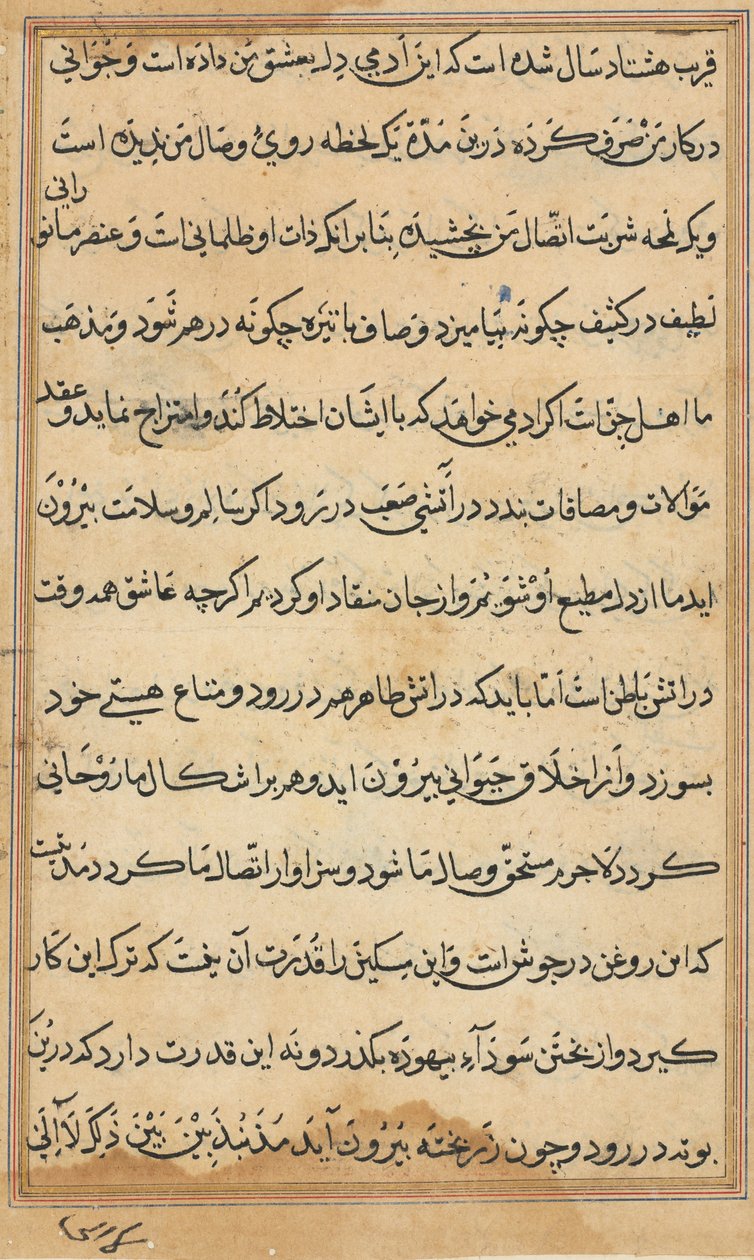 قریب هشتاد سال شده است که این آدمی دل بعشق من داده است و جوانی
در کار من صرف کرده درین مدة یک لحظه روی وصال من ندیده است
ویک لمحه شربت اتصال من نچشیده بنا بر انک ذات او ظلمانی است و عنصر ما نورانی
لطیف در کثیف چکونه بیامیزد و صاف با تیره چکونه در هم شود و مذهب
ما اهل جن است اکر ادمی خواهد که با ایشان اختلاط کند و امتزاج نماید و عقد
موالات و مصافات بندد در آتشی صعب در رود اکر سالم و سلامت بیرون
اید ما از دل مطیع او شویم و از جان منقاد او کردیم اکرچه عاشق همه وقت
در اتش باطن است اما باید که در اتش ظاهر هم در رود و متاع هستی خود
بسوزد و از اخلاق حیوانی بیرون اید و هم بر اشکال ما روحانی
کردد لاجرم مستحق وصال ما شود و سزاوار اتصال ما کردد مدتیست
که این روغن در جوش است و این مسکین را قدرت آن نیست که ترک این کار
کیرد و از پختن سودآء بیهوده بکذرد و نه این قدرت دارد که درین
بوته در رود و چون زر پخته بیرون آید مذبذبین بین ذلک لا الی